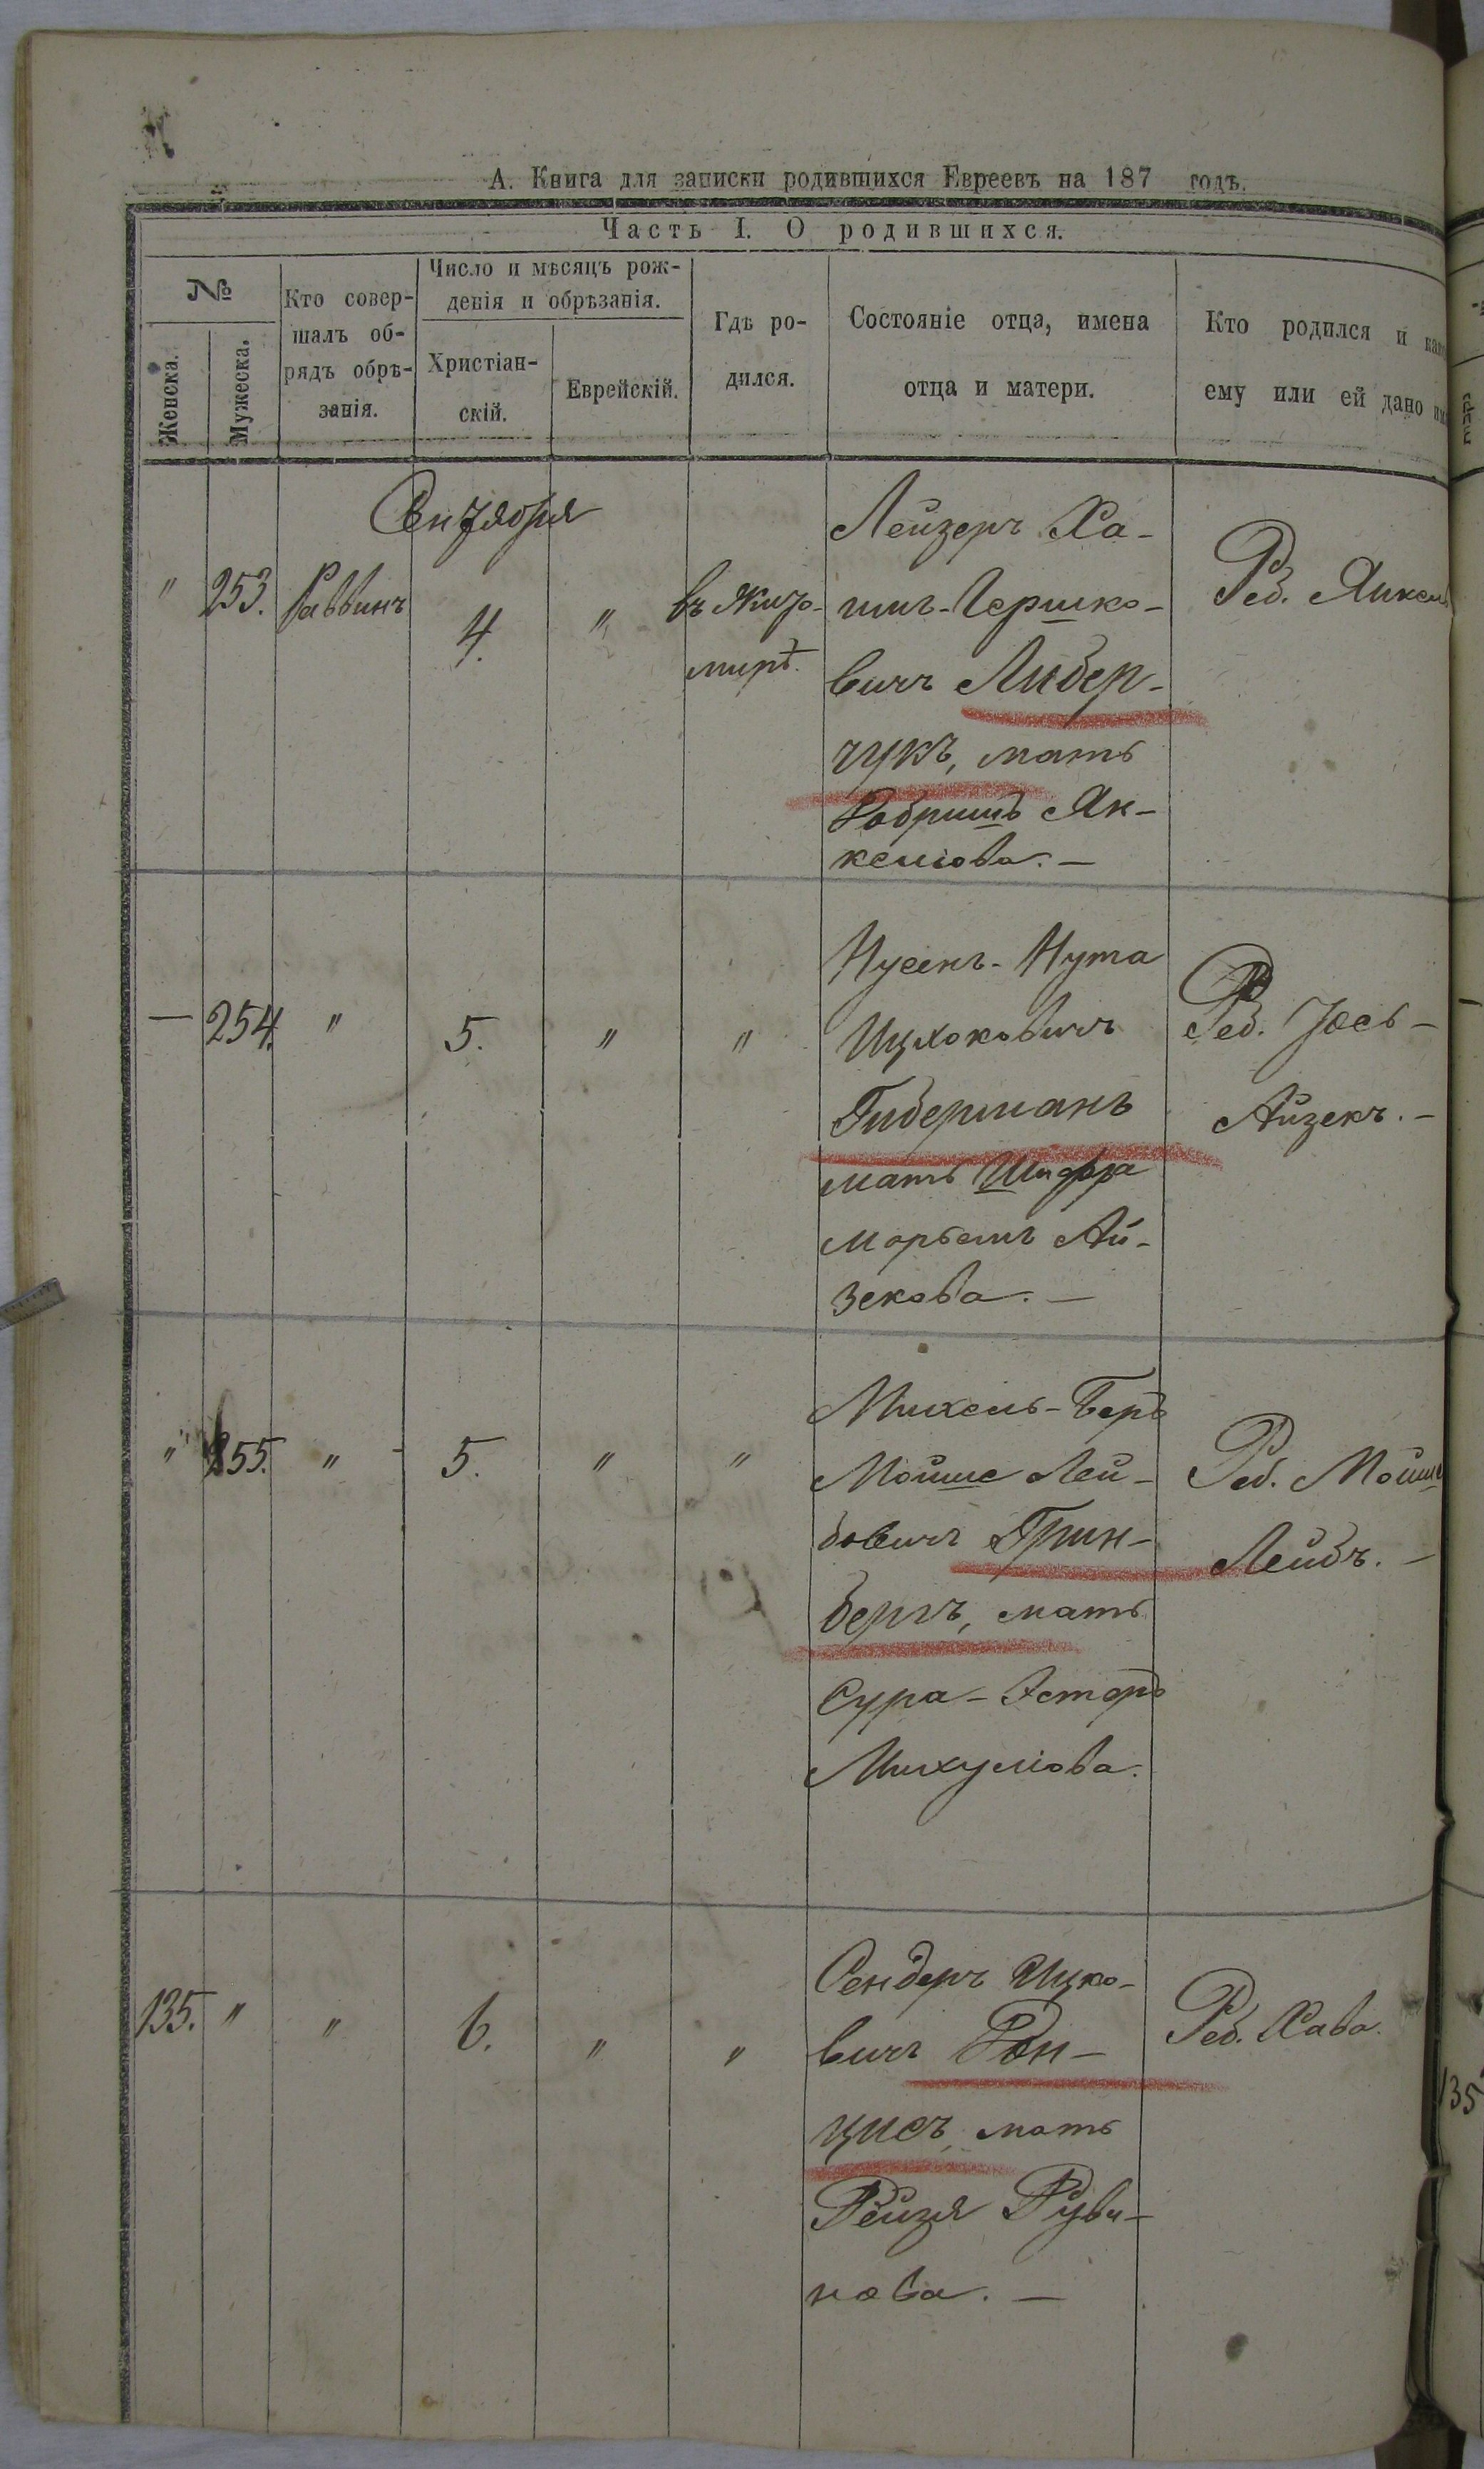 А. Книга для записки родившихся Евреевъ на 187 годъ.
Часть I. О родившихся.
№
Женска.
Мужеска.
Кто совер-
шалъ об-
рядъ обрѣ-
занія.
Число и мѣсяцъ рож-
денія и обрѣзанія.
Христіан-
скій.
Еврейскій.
Гдѣ ро-
дился.
Состояніе отца, имена
отца и матери.
Кто родился и
ему или ей дано
Сентября
" 253. Раввинъ 4. "
въ Жито-
мирѣ.
Лейзеръ Ха-
имъ-Гершко-
вичъ Либер-
чукъ, мать
Ян-
келіова. —
Реб. Янкель
— 254. " 5. " "
Нусенъ-Нута
Ицхоковичъ
Гиберманъ
мать Шифра
Марьемъ Ай-
зекова. —
Реб. Іось-
Айзекъ. —
" 255. " 5. " "
Михель-Беръ
Мойше Лей-
бовичъ Грин-
бергъ, мать
Сура-Эстеръ
Михулова.
Реб. Мойше
Лейбъ. —
135. " " 6. " "
Сендеръ Ицко-
вичъ Рой-
цисъ, мать
Рейзя Руви-
нова. —
Реб. Хава.
135